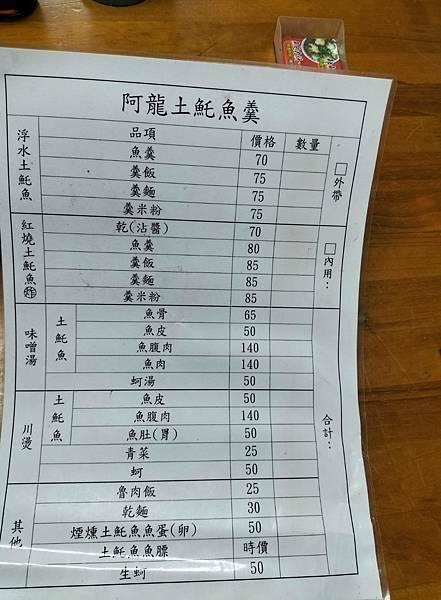 阿龍土魠魚羹
品項 價格 數量
浮水土魠魚
魚羹 70
羹飯 75
羹麵 75
羹米粉 75
□外帶
紅燒土魠魚㊕
乾(沾醬) 70
魚羹 80
羹飯 85
羹麵 85
羹米粉 85
□內用：
味噌湯
土魠魚
魚骨 65
魚皮 50
魚腹肉 140
魚肉 140
蚵湯 50
川燙
土魠魚
魚皮 50
魚腹肉 140
魚肚(胃) 50
青菜 25
蚵 50
合計：
其他
魯肉飯 25
乾麵 30
煙燻土魠魚魚蛋(卵) 50
土魠魚魚膘 時價
生蚵 50